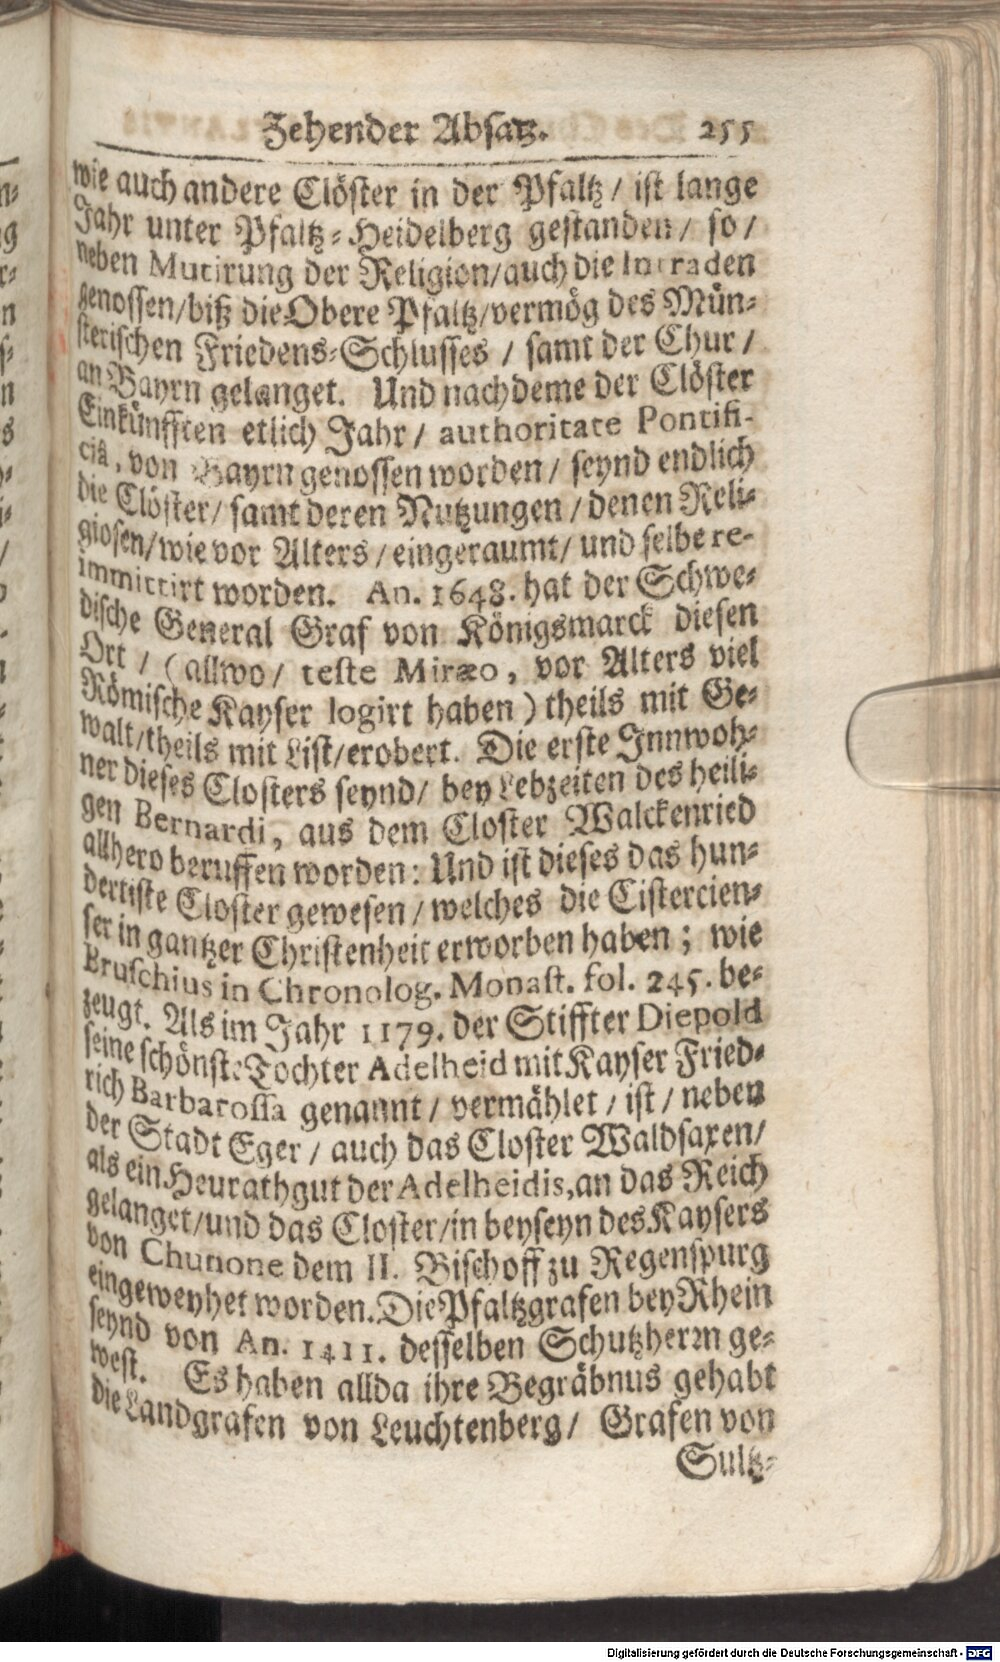 Zehender Absatz. 255
wie auch andere Clöster in der Pfaltz / ist lange
Jahr unter Pfaltz-Heidelberg gestanden / so /
neben Mutirung der Religion/auch die Intraden
genossen/biß die Obere Pfaltz/vermög des Mün-
sterischen Friedens-Schlusses / samt der Chur /
an Bayrn gelanget. Und nachdeme der Clöster
Einkünfften etlich Jahr / authoritate Pontifi-
ciâ, von Bayrn genossen worden / seynd endlich
die Clöster/ samt deren Nutzungen / denen Reli-
giosen/wie vor Alters / eingeraumt/ und selbe re-
immittirt worden. An. 1648. hat der Schwe-
dische General Graf von Königsmarck diesen
Ort / (allwo/ teste Miræo, vor Alters viel
Römische Kayser logirt haben) theils mit Ge-
walt/theils mit List/erobert. Die erste Innwoh-
ner dieses Closters seynd/ bey Lebzeiten des heili-
gen Bernardi, aus dem Closter Walckenried
allhero beruffen worden: Und ist dieses das hun-
dertiste Closter gewesen / welches die Cistercien-
ser in gantzer Christenheit erworben haben; wie
Bruschius in Chronolog. Monast. fol. 245. be-
zeugt. Als im Jahr 1179. der Stiffter Diepold
seine schönste Tochter Adelheid mit Kayser Fried-
rich Barbarossa genannt / vermählet / ist / neben
der Stadt Eger / auch das Closter Waldsaxen/
als ein Heurathgut der Adelheidis, an das Reich
gelanget/und das Closter/in beyseyn des Kaysers
von Chunone dem II. Bischoff zu Regenspurg
eingeweyhet worden. Die Pfaltzgrafen bey Rhein
seynd von An. 1411. desselben Schutzherrn ge-
west. Es haben allda ihre Begräbnus gehabt
die Landgrafen von Leuchtenberg / Grafen von
Sultz-
Digitalisierung gefördert durch die Deutsche Forschungsgemeinschaft - DFG